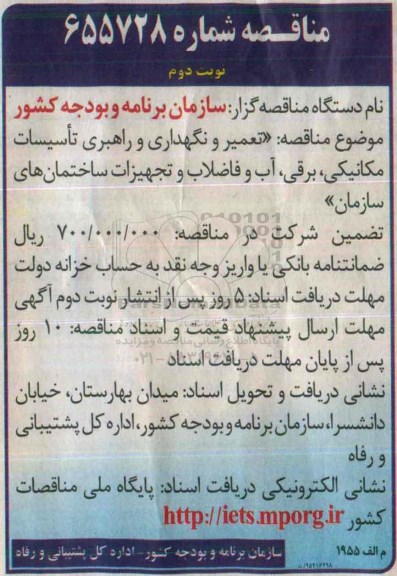 مناقـصه شماره ۶۵۵۷۲۸
نوبت دوم
نام دستگاه مناقصه‌گزار: سازمان برنامه و بودجه کشور
موضوع مناقصه: «تعمیر و نگهداری و راهبری تأسیسات
مکانیکی، برقی، آب و فاضلاب و تجهیزات ساختمان‌های
سازمان»
تضمین شرکت در مناقصه: ۷۰۰/۰۰۰/۰۰۰ ریال
ضمانتنامه بانکی یا واریز وجه نقد به حساب خزانه دولت
مهلت دریافت اسناد: ۵ روز پس از انتشار نوبت دوم آگهی
مهلت ارسال پیشنهاد قیمت و اسناد مناقصه: ۱۰ روز
پس از پایان مهلت دریافت اسناد
نشانی دریافت و تحویل اسناد: میدان بهارستان، خیابان
دانشسرا، سازمان برنامه و بودجه کشور، اداره کل پشتیبانی
و رفاه
نشانی الکترونیکی دریافت اسناد: پایگاه ملی مناقصات
کشور http://iets.mporg.ir
م الف ۱۹۵۵
سازمان برنامه و بودجه کشور - اداره کل پشتیبانی و رفاه